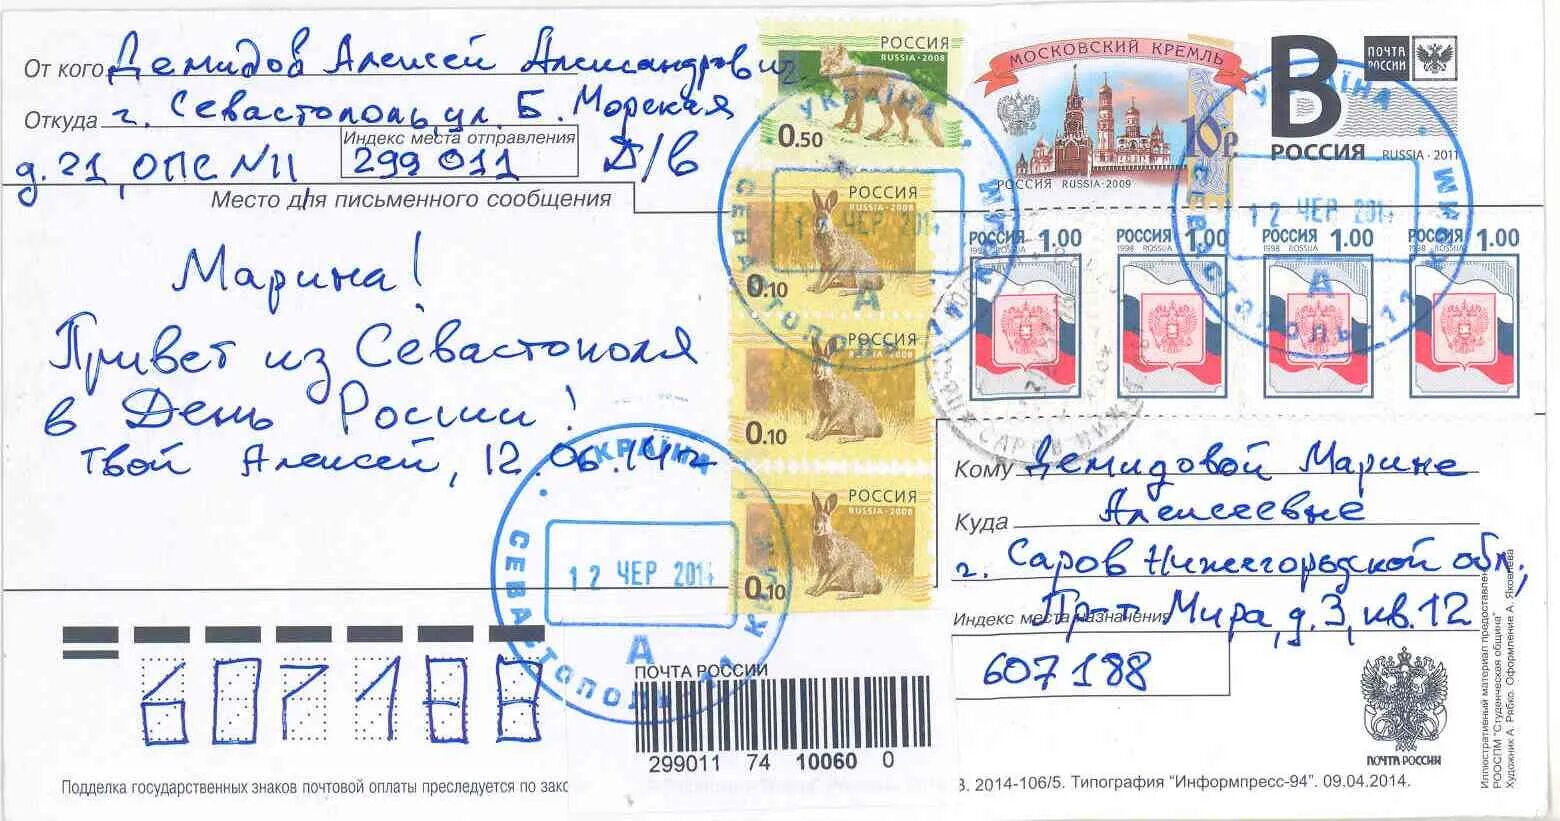 От кого Демидов Алексей Александрович
Откуда г. Севастополь, ул. Б. Морская
Индекс места отправления
д. 21, ОПС №11 299 011 Д/в
Место для письменного сообщения
Марина!
Привет из Севастополя
в День России!
Твой Алексей, 12.06.14г
РОССИЯ
RUSSIA·2008
0.50
РОССИЯ
RUSSIA·2008
0.10
РОССИЯ
0.10
РОССИЯ
RUSSIA·2008
0.10
МОСКОВСКИЙ КРЕМЛЬ
10р
РОССИЯ RUSSIA·2009
ПОЧТА РОССИИ
B
РОССИЯ RUSSIA·2011
РОССИЯ 1.00 РОССИЯ 1.00 РОССИЯ 1.00 РОССИЯ 1.00
1998 RUSSIA 1998 RUSSIA 1998 RUSSIA 1998 RUSSIA
УКРАЇНА
12 ЧЕР 2014
А
СЕВАСТОПОЛЬ 11
УКРАЇНА
12 ЧЕР 2014
А
СЕВАСТОПОЛЬ 11
УКРАЇНА
12 ЧЕР 2014
А
СЕВАСТОПОЛЬ
САРОВ НИЖЕГ
Кому Демидовой Марине
Алексеевне
Куда
г. Саров Нижегородской обл.,
Пр-т Мира, д. 3, кв. 12
Индекс места назначения
607188
607188
ПОЧТА РОССИИ
299011 74 10060 0
ПОЧТА РОССИИ
Подделка государственных знаков почтовой оплаты преследуется по зако
В. 2014-106/5. Типография "Информпресс-94". 09.04.2014.
Иллюстративный материал предоставлен
РООСПМ "Студенческая община"
Художник А. Рябко. Оформление А. Яковлева